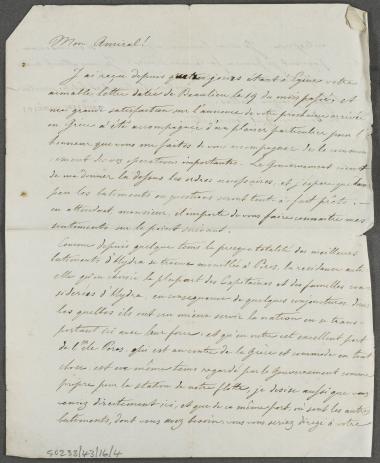 Mon Amiral!
J'ai reçu depuis quelques jours étant à Egine votre
aimable lettre datée de Beaulieu le 19 du mois passé, et
ma grande satisfaction sur l'annonce de votre prochaine arrivée
en Grèce a été accompagnée d'un plaisir particulier pour l'
honneur que vous me faites de vous accompagner de le commen
cement de vos operations importantes. Le Gouvernement vient
de me donner la dessus les ordres necessaires, et j'espere que dans
peu les batiments en questions seront tout à fait prets; —
en attendant monsieur, il importe de vous faire connaitre mes
sentiments sur le point suivant.
Comme depuis quelque tems la presque totalité des meilleurs
batiments d'Hydra se trouve mouillée à Poros, la residence actu
elle qu'on choisie la plupart des Capitaines et des familles con
siderées d'Hydra, en consequence de quelques conjonctures dans
les quelles ils ont cru mieux servir la nation en se trans
portant ici avec leur force, et qu'en outre cet excellent port
de l'Ile Poros, qui est au centre de la Grèce et commode en tout
chose, est en même tems regardé par le Gouvernement comme
propre pour la station de notre flotte, je desire aussi que vous
veniez directement ici, et que de ce même port, où sont les autres
batiments, dont vous avez besoin, vous vous seriez dirigé à votre
50233/43/16/4